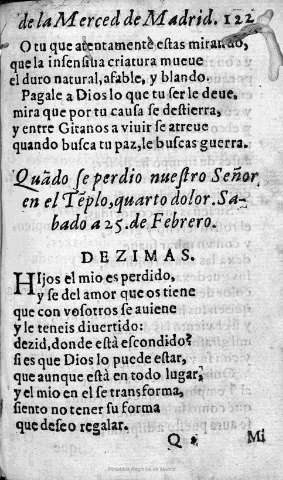 de la Merced de Madrid. 122
O tu que atentamente estas mirando,
que la insensiua criatura mueue
el duro natural, afable, y blando.
Pagale a Dios lo que tu ser le deue,
mira que por tu causa se destierra,
y entre Gitanos a viuir se atreue
quando busca tu paz, le buscas guerra.
Quãdo se perdio nuestro Señor
en el Tẽplo, quarto dolor. Sa-
bado a 25. de Febrero.
DEZIMAS.
HIjos el mio es perdido,
y se del amor que os tiene
que con vosotros se auiene
y le teneis diuertido:
dezid, donde està escondido?
si es que Dios lo puede estar,
que aunque està en todo lugar,
y el mio en el se transforma,
siento no tener su forma
que deseo regalar.
Q Mi
Biblioteca Regional de Madrid